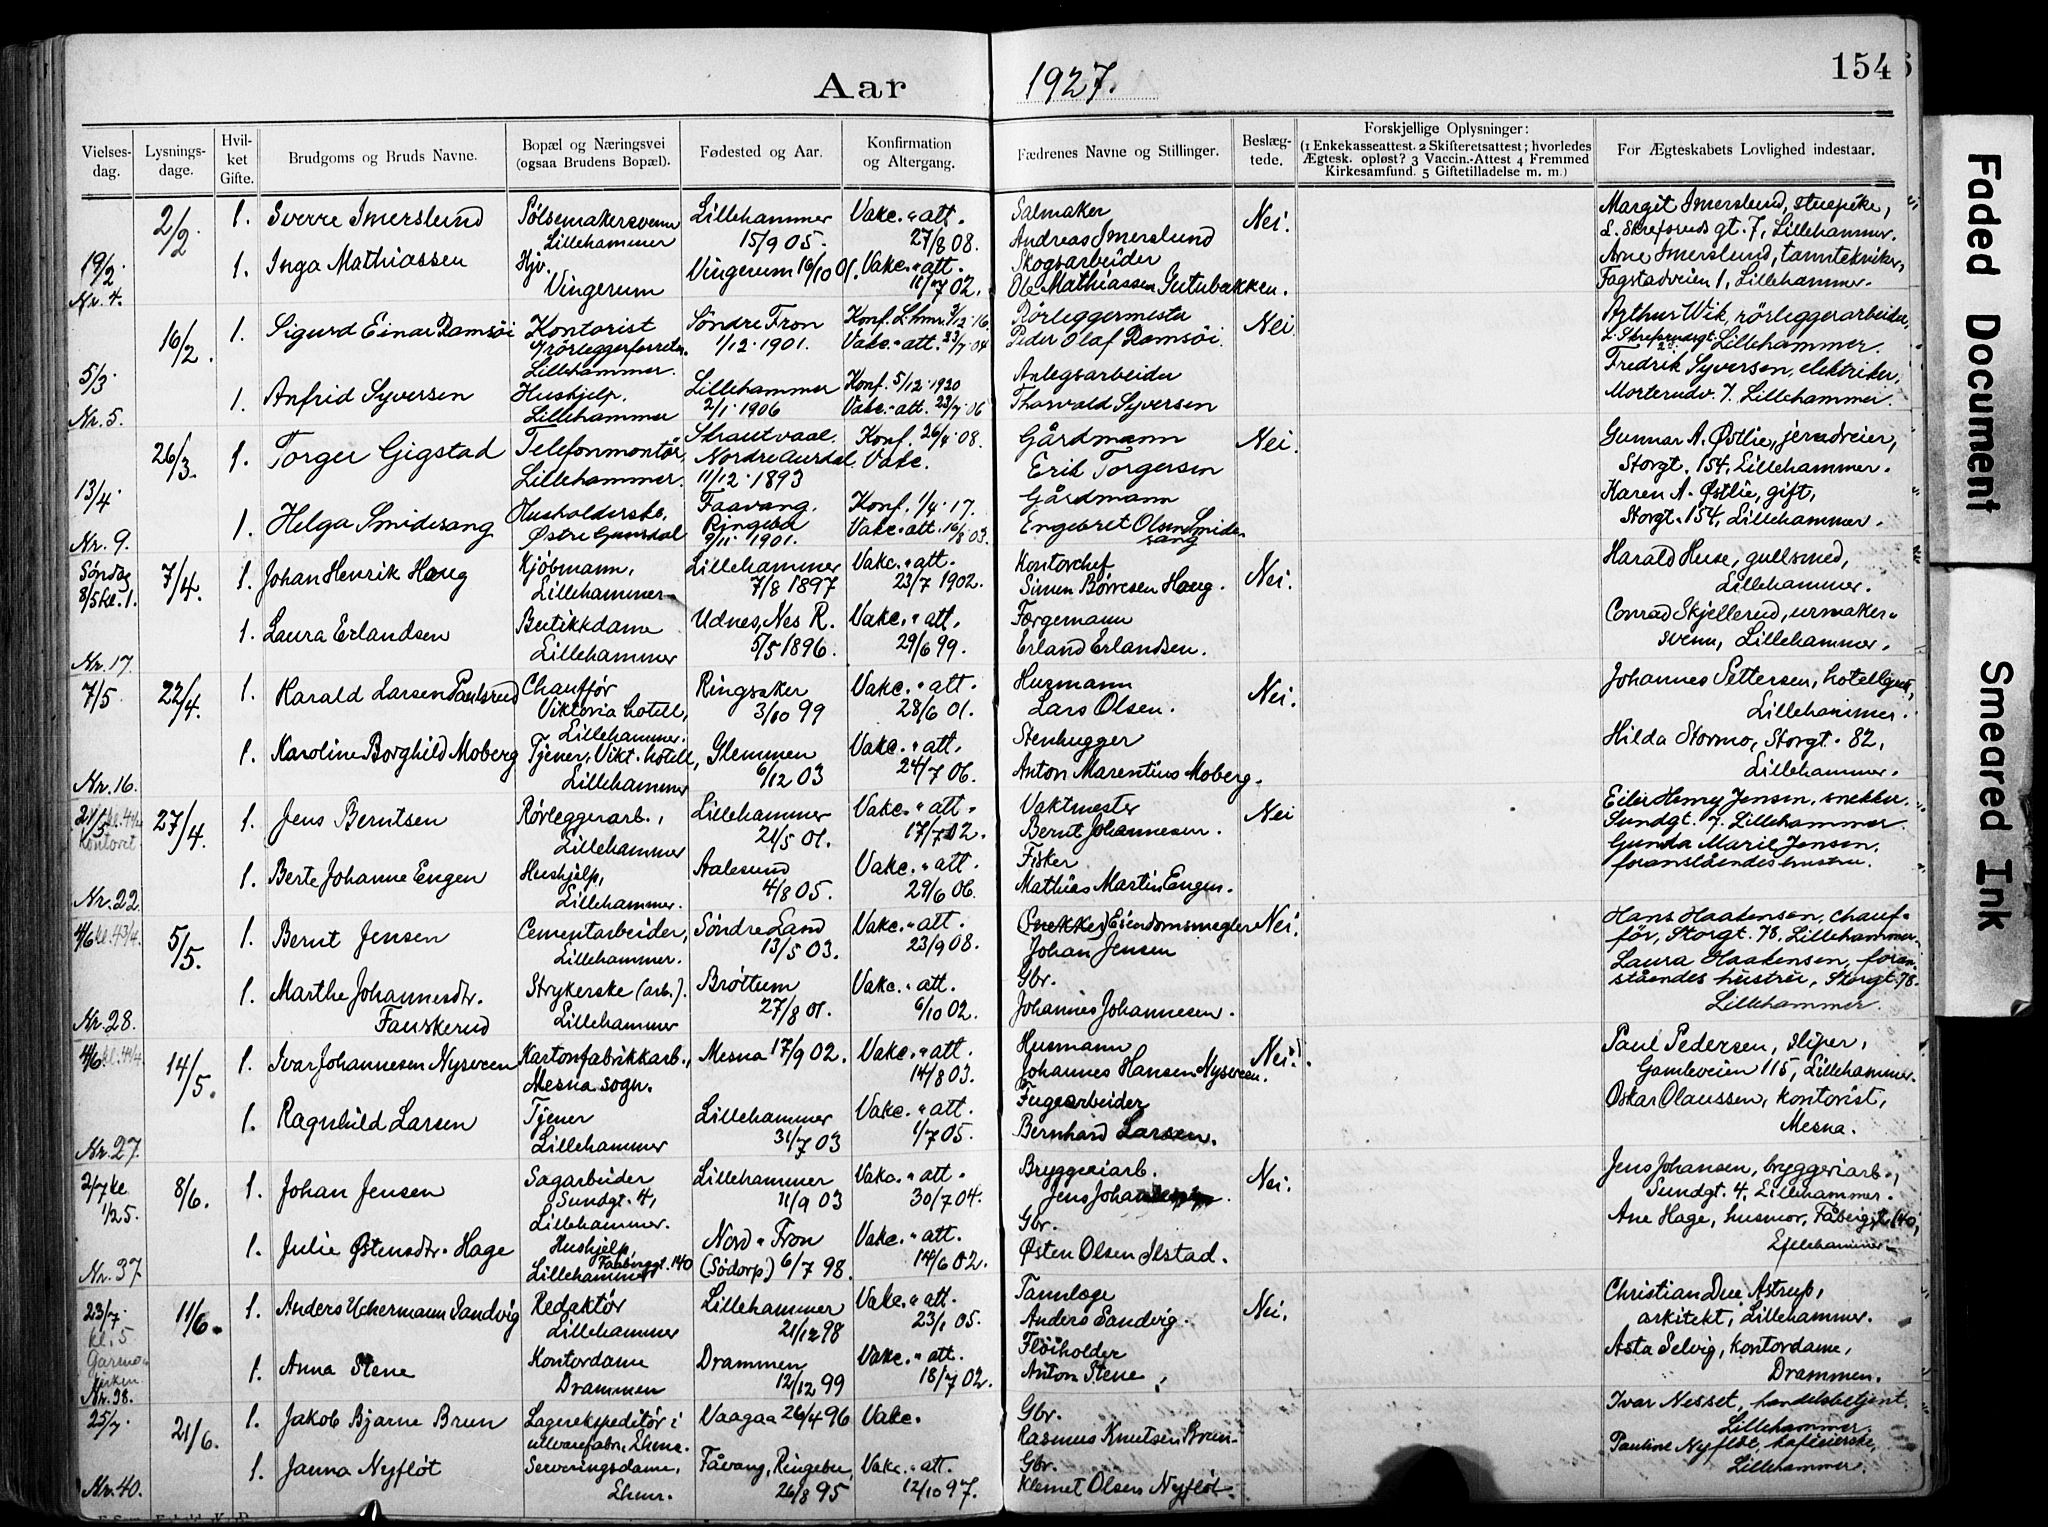 Aar 1927. 154
Vielses-dag. Lysnings-dage. Hvil-ket Gifte. Brudgoms og Bruds Navne. Bopæl og Næringsvei (ogsaa Brudens Bopæl). Fødested og Aar. Konfirmation og Altergang. Fædrenes Navne og Stillinger. Beslæg-tede. Forskjellige Oplysninger: (1 Enkekasseattest. 2 Skifteretsattest; hvorledes Ægtesk. opløst? 3 Vaccin.-Attest 4 Fremmed Kirkesamfund. 5 Giftetilladelse m. m.) For Ægteskabets Lovlighed indestaar.
2/2. 1. Sverre Imerslund Lillehammer Vakc. att. Salmaker Nei. Margit Imerslund, stuepike,
Lillehammer 15/9 05. 27/8 08. Andreas Imerslund L. Skrefsruds gt. 7, Lillehammer.
19/2. 1. Inga Mathiassen Hjv. Vingerum 16/10 01. Vakc. att. Skogsarbeider Arne Imerslund, tanntekniker,
Nr. 4. Vingerum 11/7 02. Ole Mathiassen Gutubakken. Fagstadveien 1, Lillehammer.
16/2. 1. Sigurd Einar Ramsøi Kontorist Søndre Fron Konf. Rørleggermester Nei Arthur Wik, rørleggerarbeider,
1/12 1901. Vakc. att. 23/7 04 Peder Olaf Ramsøi. L. Skrefsrudsgt. Lillehammer.
5/3. Lillehammer. Fredrik Syversen, elektriker,
1. Anfrid Syversen Hushjelp, Lillehammer Konf. 5/12 1920 Anlegsarbeider
Nr. 5. Lillehammer 2/1 1906 Vakc. att. 23/7 06 Thorvald Syversen Lillehammer.
26/3. 1. Torger Gigstad Telefonmontør, Skrautvaal. Konf. 26/4 08. Gårdmann Nei. Gunnar A. Østlie,
Lillehammer. Nordre Aurdal, Vakc. Erik Torgersen Storgt. 154, Lillehammer.
13/4. 11/12 1893 Gårdmann Karen A. Østlie, gift,
1. Helga Smidesang Husholderske, Faavang, Konf. 1/4 17. Engebret Olsen Smidesang Storgt. 154, Lillehammer.
Nr. 9. Østre Gausdal Ringebu 9/11 1901. Vakc. att. 16/8 03.
Søndag 7/4. 1. Johan Henrik Haug Kjøbmann, Lillehammer Vakc. att. Kontorchef Nei. Harald Huse, gullsmed,
8/5 kl. 1. Lillehammer 7/8 1897 23/7 1902. Simen Børresen Haug. Lillehammer.
1. Laura Erlandsen Butikkdame Udnes, Nes R. Vakc. att. Færgemann Conrad Skjellerud, urmaker-
Nr. 17. Lillehammer 5/5 1896. 29/6 99. Erland Erlandsen. svenn, Lillehammer.
7/5 22/4. 1. Harald Larsen Paulsrud Chauffør Ringsaker Vakc. att. Husmann Nei. Johannes Pettersen,
Viktoria hotell, 3/10 99 28/6 01. Lars Olsen. Lillehammer.
Lillehammer.
1. Karoline Borghild Moberg Tjener, Vikt. hotell, Glemmen Vakc. att. Stenhugger Hilda Stormo, Storgt. 82,
Nr. 16. Lillehammer 6/12 03 24/7 06. Anton Marentius Moberg. Lillehammer.
21/5 27/4. 1. Jens Berntsen Rørleggerarb., Lillehammer Vakc. att. Vaktmester Nei Eiler Henry Jensen, snekker.
Kontoret Lillehammer 21/5 01. 17/7 02. Bernt Johannesen. Sundgt. 7. Lillehammer.
1. Berte Johanne Engen Hushjelp, Aalesund Vakc. att. Fisker Gunda Marie Jensen,
Nr. 22. Lillehammer. 4/8 05. 29/6 06. Mathias Martin Engen. foranståendes hustru.
4/6 kl. 4 3/4. 5/5. 1. Bernt Jensen Cementarbeider, Søndre Land Vakc. att. (Snekker) Eiendomsmegler Nei. Hans Haakensen, chauf-
Lillehammer. 13/5 03. 23/9 08. Johan Jensen før, Storgt. 78, Lillehammer.
1. Marthe Johannesdtr. Strykerske (arb.). Brøttum Vakc. att. Gbr. Laura Haakensen, foran-
Nr. 28. Fauskerud Lillehammer 27/8 01. 6/10 02. Johannes Johannesen. ståendes hustru, Storgt. 78.
Lillehammer.
4/6 14/5. 1. Ivar Johannesen Nysveen Kartonfabrikkarb., Mesna 17/9 02. Vakc. att. Husmann Nei. Paul Pedersen, sliper,
Mesna sogn. 14/8 03. Johannes Hansen Nysveen. Gamleveien 115, Lillehammer.
1. Ragnhild Larsen Tjener Lillehammer Vakc. att. Oskar Olaussen, kontorist,
Nr. 27. Lillehammer 31/7 03 1/7 05. Bernhard Larsen. Mesna.
2/7 kl. 8/6. 1. Johan Jensen Sagarbeider Lillehammer Vakc. att. Bryggeriarb. Nei. Jens Johansen, bryggeriarb.,
Sundgt. 4, 11/9 03 30/7 04. Jens Johansen. Sundgt. 4. Lillehammer.
Lillehammer. Gbr. Ane Hage, husmor,
1. Julie Østensdtr. Hage Hushjelp, Faaberggt. 140 Nord-Fron Vakc. att. Østen Olsen Ilstad.
Nr. 37 Lillehammer (Sødorp) 6/7 98. 14/6 02.
23/7. 11/6. 1. Anders Uchermann Sandvig Redaktør Lillehammer Vakc. att. Tannlæge Nei. Christian Due Astrup,
kl. 5 Lillehammer 21/12 98 23/1 05. Anders Sandvig. arkitekt, Lillehammer.
1. Anna Stene Kontordame Drammen Vakc. att. Fløiholder Asta Selvig, kontordame,
Nr. 38. Drammen 12/12 99 18/7 02. Anton Stene Drammen.
25/7 21/6. 1. Jakob Bjarne Brun Lagerekspeditør i Vaagaa 26/4 96 Vakc. Gbr. Ivar Nesset, handelsbetjent.
ullvarefabr., Lhmr. Rasmus Knutsen Brun Lillehammer
1. Janna Nyfløt Serveringsdame, Fåvang, Ringebu, Vakc. att. Gbr. Pauline Nyfløt,
Nr. 40. Lhmr. 26/8 95 12/10 97. Klemet Olsen Nyfløt Lillehammer.
Faded Document
Smeared Ink